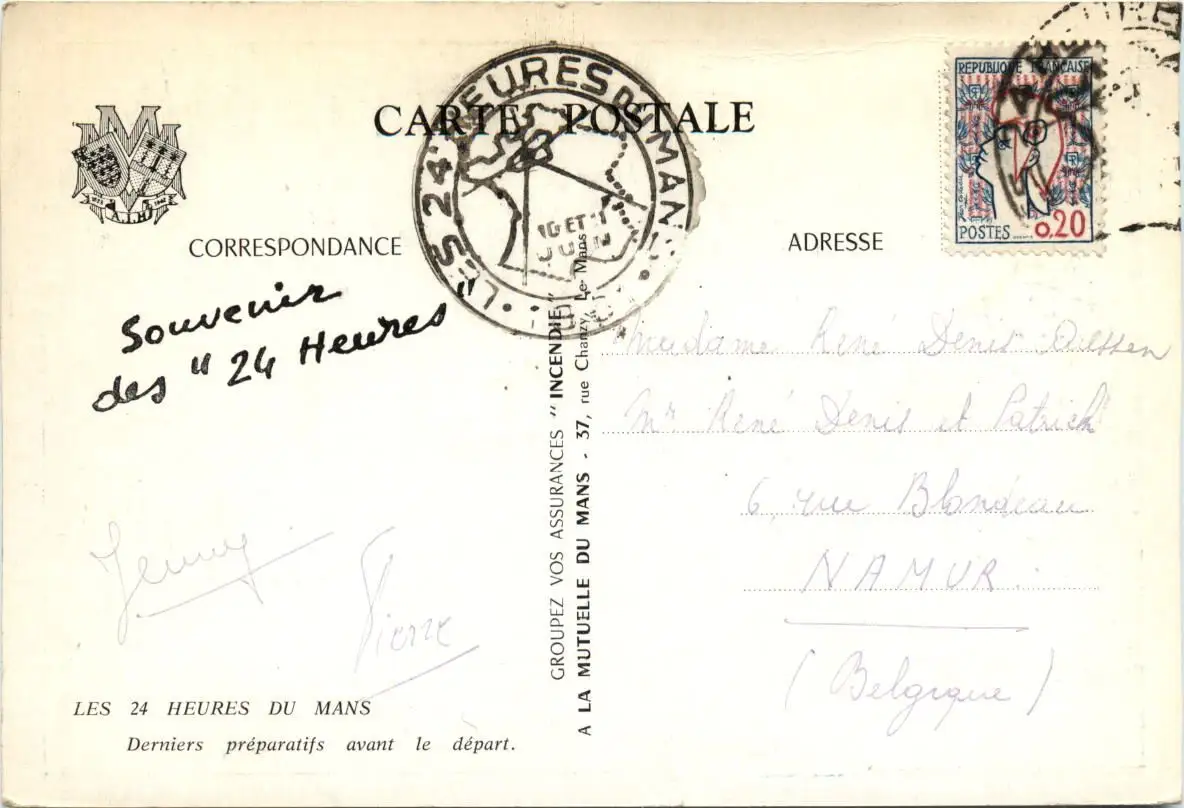 CARTE POSTALE
LES 24 HEURES DU MANS
10 ET 11
JUIN
REPUBLIQUE FRANÇAISE
POSTES
0,20
A.I.H
CORRESPONDANCE
ADRESSE
Souvenir
des "24 Heures"
Jenny
Pierre
LES 24 HEURES DU MANS
Derniers préparatifs avant le départ.
GROUPEZ VOS ASSURANCES "INCENDIE"
A LA MUTUELLE DU MANS - 37, rue Chanzy, Le Mans
Madame René Denis
Mr René Denis et Patrick
6, rue Blondeau
NAMUR.
(Belgique)